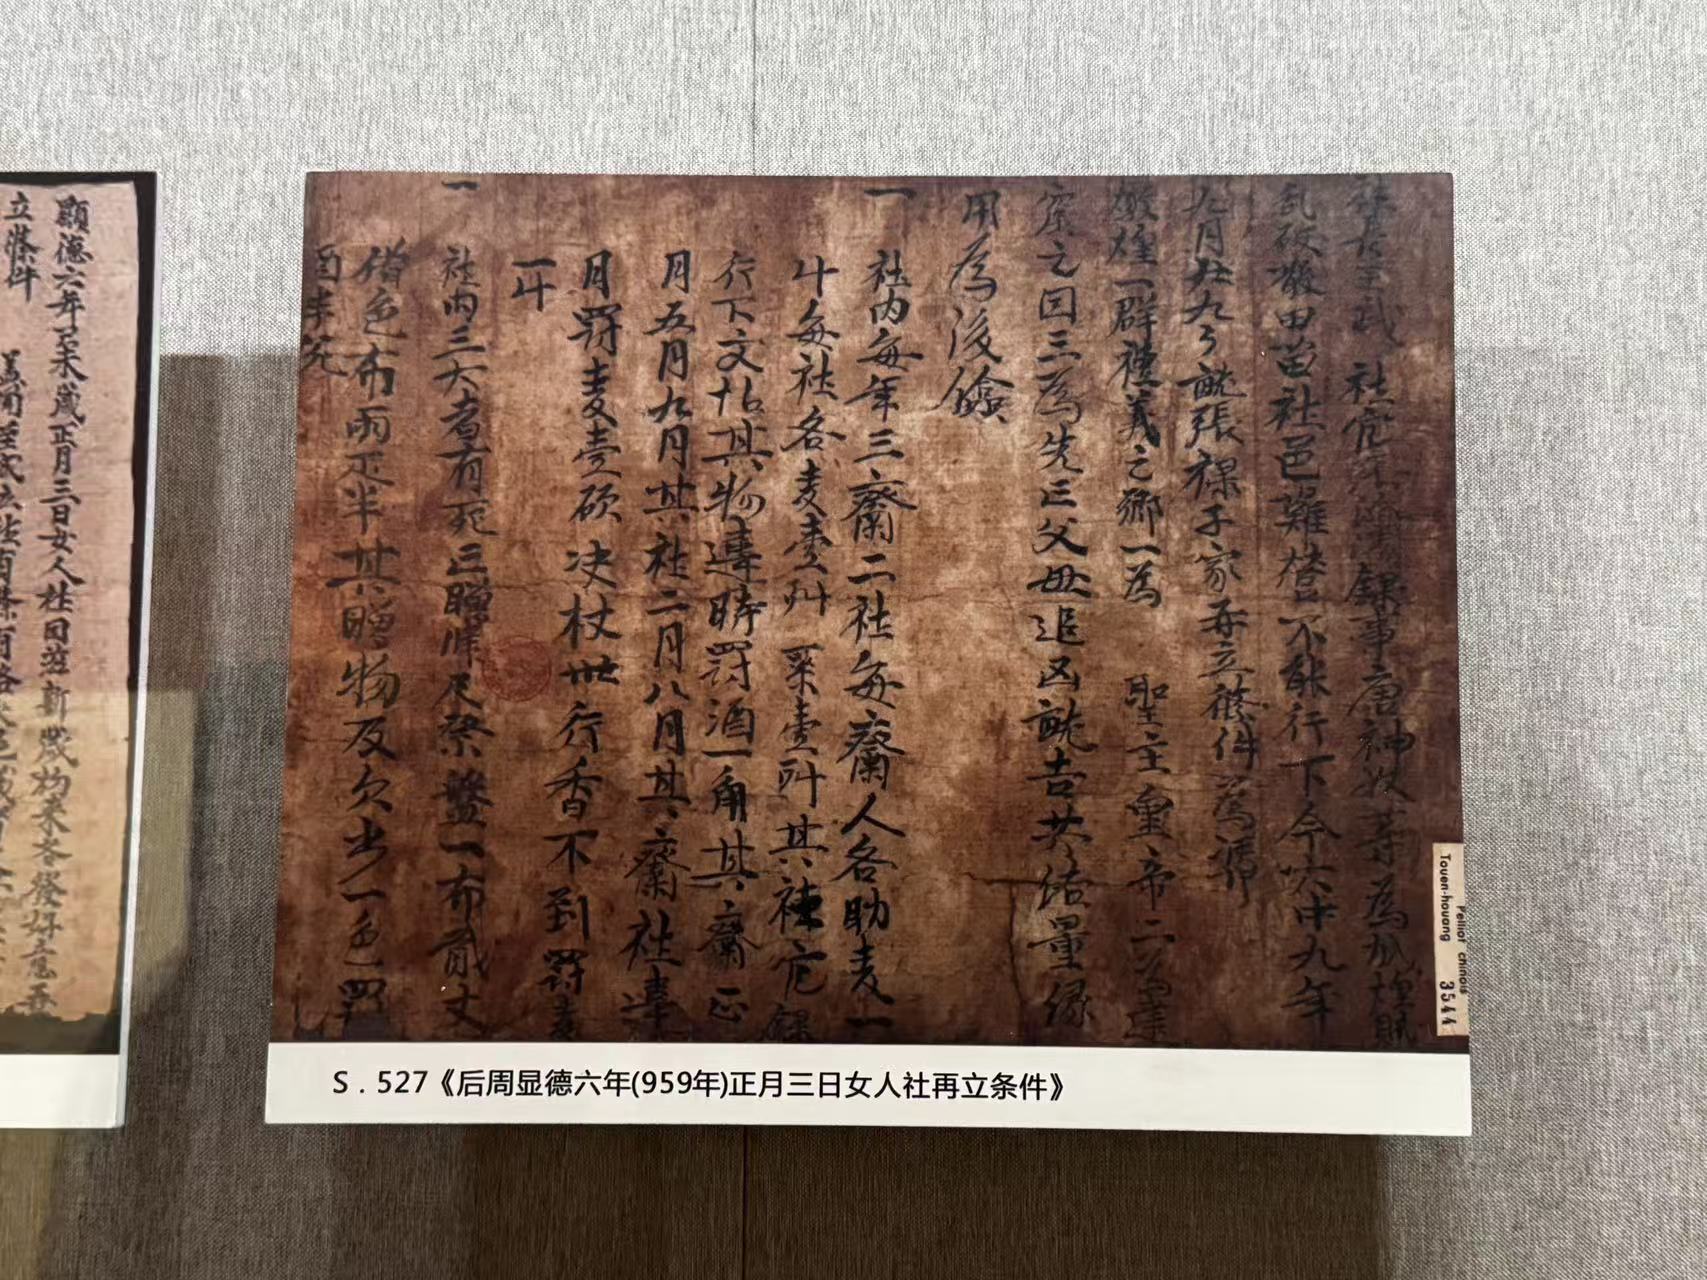 社長王武 社官 錄事唐神奴等為城煌賊
亂破散田苗社邑難營不能行下今大中九年
九月廿九日就張祿子家再立條件為憑
燉煌一群禮義之鄉一為 聖主皇帝二為建
窟之因三為先亡父母追凶就吉共結量緣
用為後驗
一 社內每年三齋二社每齋人各助麦一
斗每社各麦壹㪷粟壹㪷其社官錄
行下文帖其物違時罰酒一角其齋正
月五月九月其社二月八月其齋社違
月罰麦壹碩決杖卅行香不到罰麦
一斗
一 社內三大者有死亡贈 尺祭盤一布貳丈
借色布兩疋半其贈物及欠少一色罰
酒半瓮
Pelliot chinois
Touen-houang 3544
S．527《后周显德六年(959年)正月三日女人社再立条件》
顯德六年己未歲正月三日女人社因滋新歲初來各發好意再
立條件 盖聞至誠立社有條有格